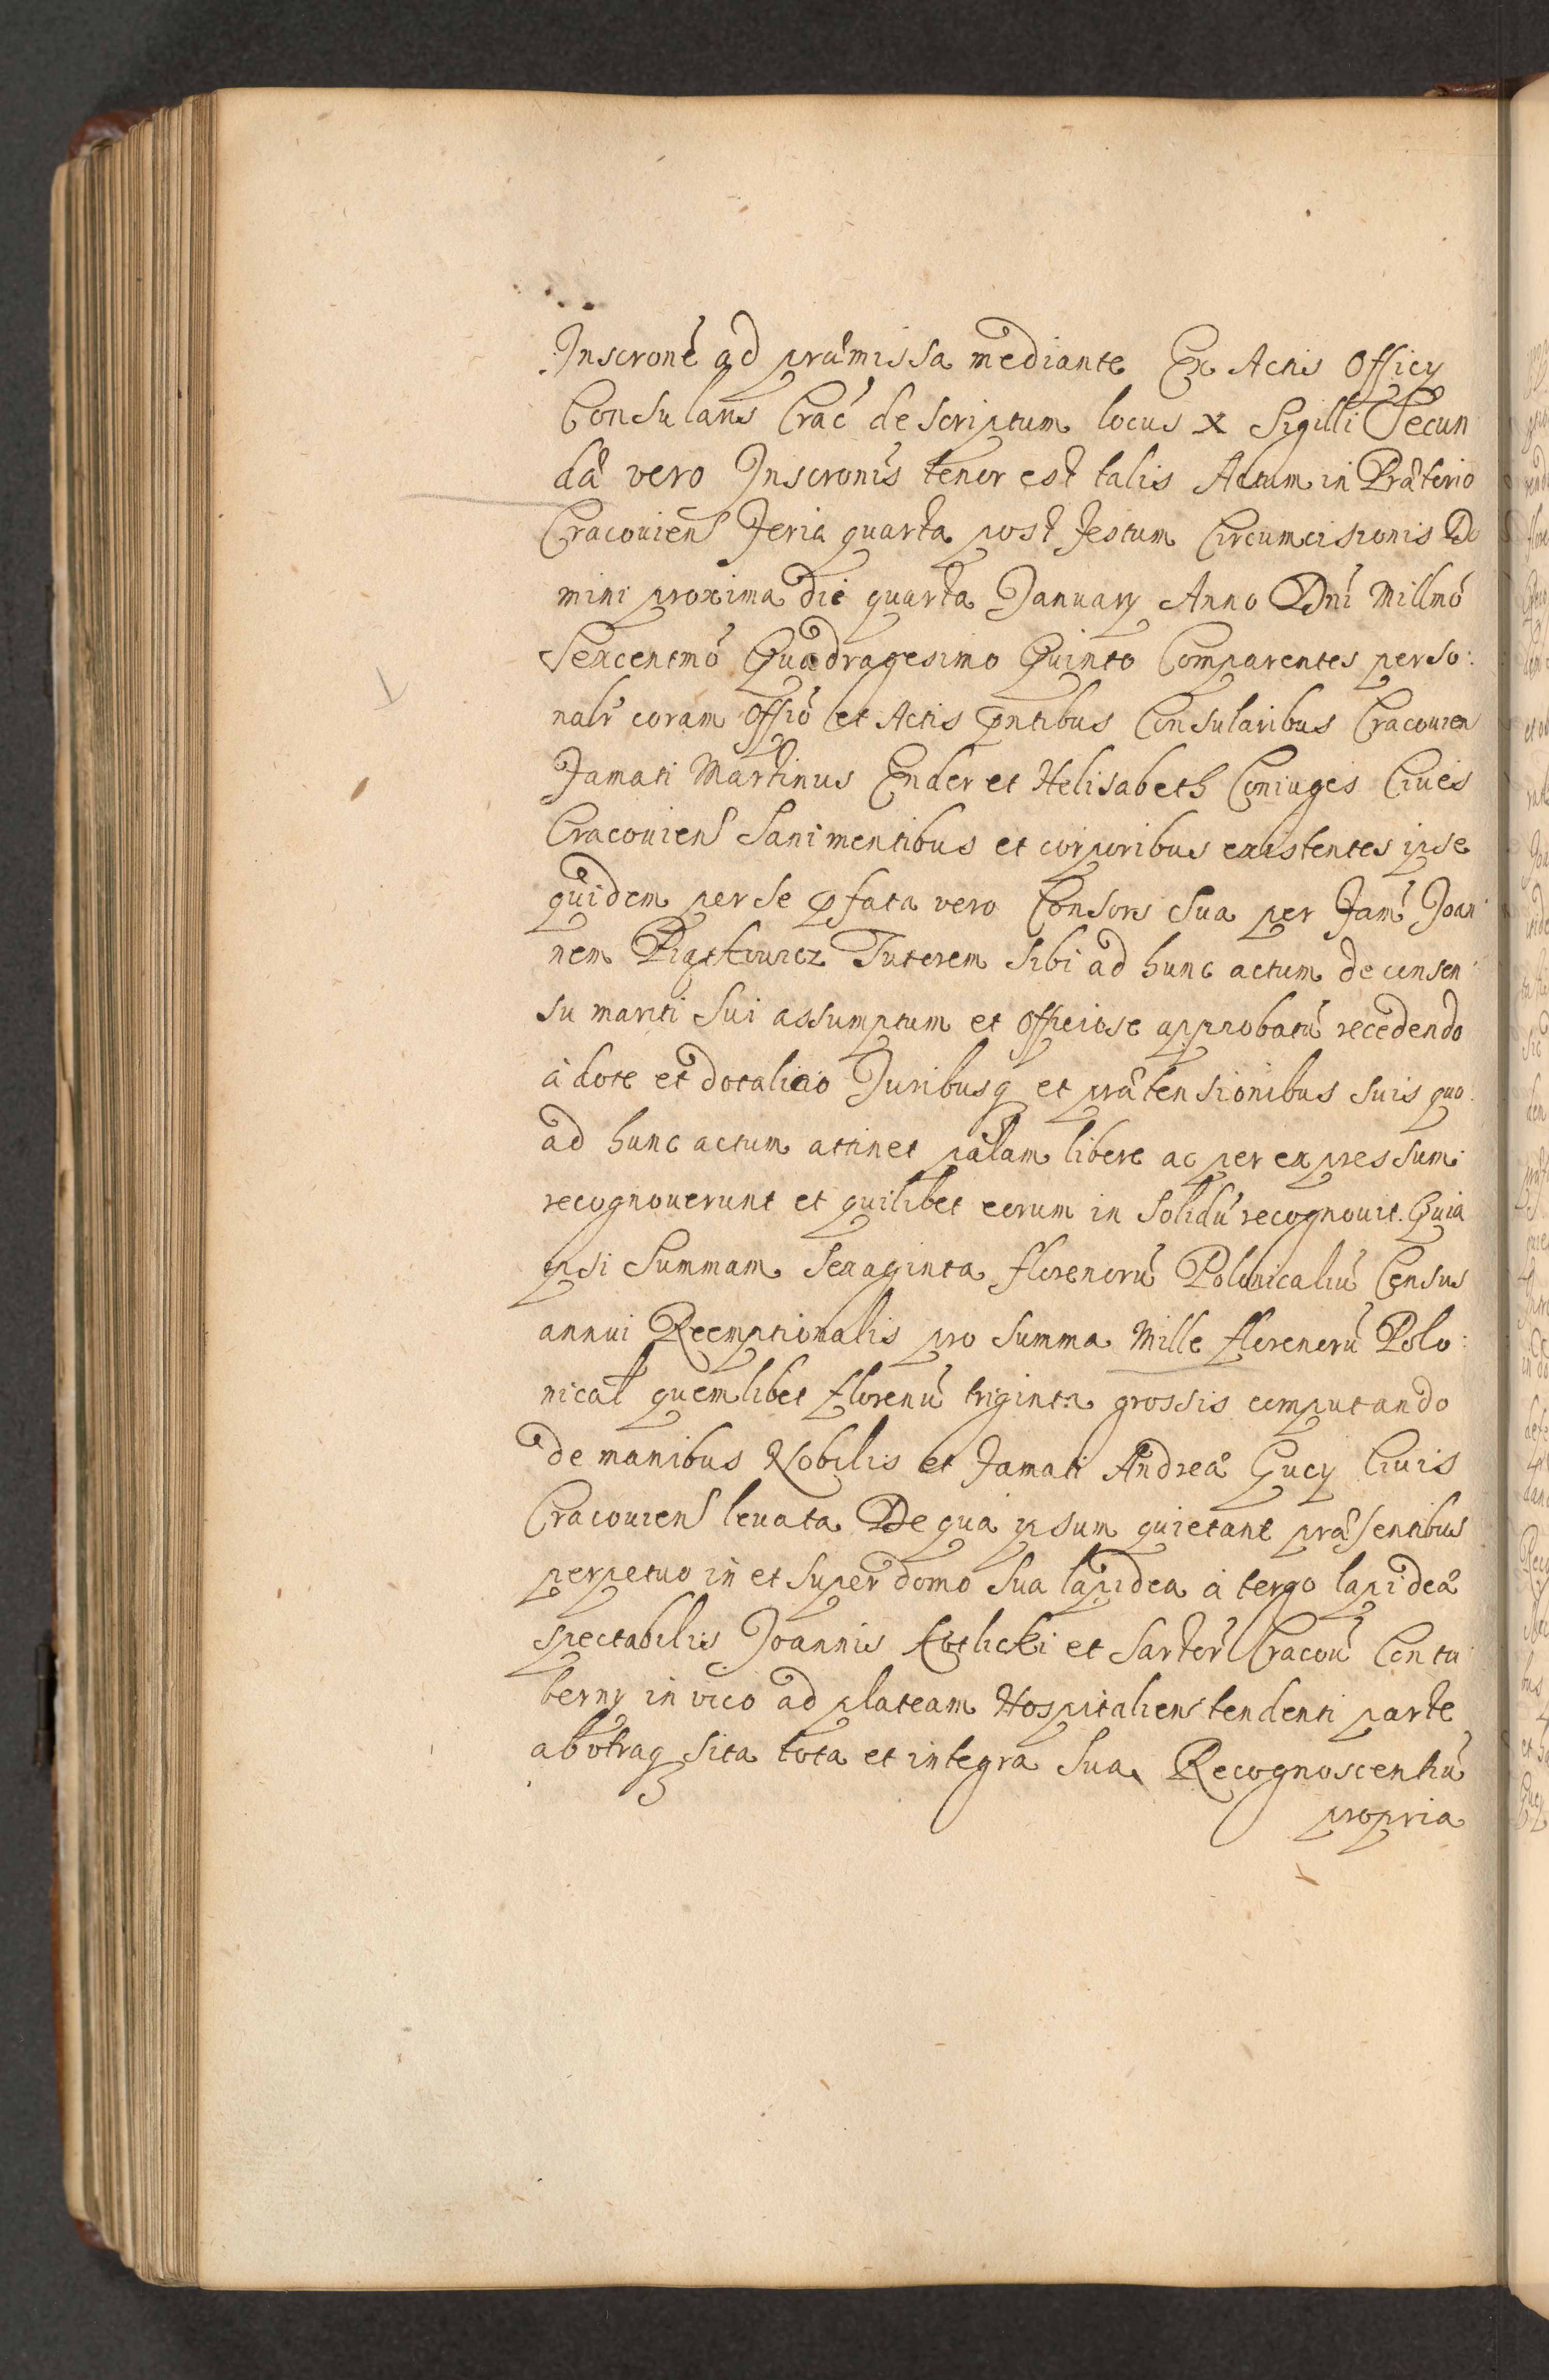 Inscrone ad præmissa mediante Ex Actis Officy
Consularis Crac descriptum locus x Sigilli Secun
dæ vero Inscronis tenor est talis Actum in Prætorio
Cracovien Feria quarta post Festum Circumcisionis Do
mini proxima die quarta January Anno Dni Millmo
Sexcentmo Quadragesimo Quinto Comparentes perso:
nalr coram Offio et Actis pntibus Consularibus Cracouien
Famati Martinus Ender et Helisabeth Coniuges Ciues
Cracouien Sani mentibus et corporibus existentes ipse
quidem per se pfata vero Consors sua per Fam Joan
nem Piątkowicz Tutorem sibi ad hunc actum de consen
su mariti sui assumptum et officiose approbatu recedendo
à dote et dotalicio Juribusq et prætensionibus suis quo
ad hunc actum attinet palam libere ac per expressum
recognouerunt et quilibet eorum in solidu recognouit. Quia
ipsi Summam sexaginta florenoru Polonicaliu Census
annui Reemptionalis pro summa Mille florenoru Polo:
nical quemlibet florenu triginta grossis computando
de manibus Nobilis et Famati Andreæ Gucy Ciuis
Cracouien leuata De qua ipsum quietant præsentibus
perpetuo in et super domo sua lapidea à tergo lapideæ
spectabilis Joannis Kotlicki et Sartor Cracou Contu
berny in vico ad plateam Hospitalien tendenti parte
ab vtraq sita tota et integra sua Recognoscentiu
propria